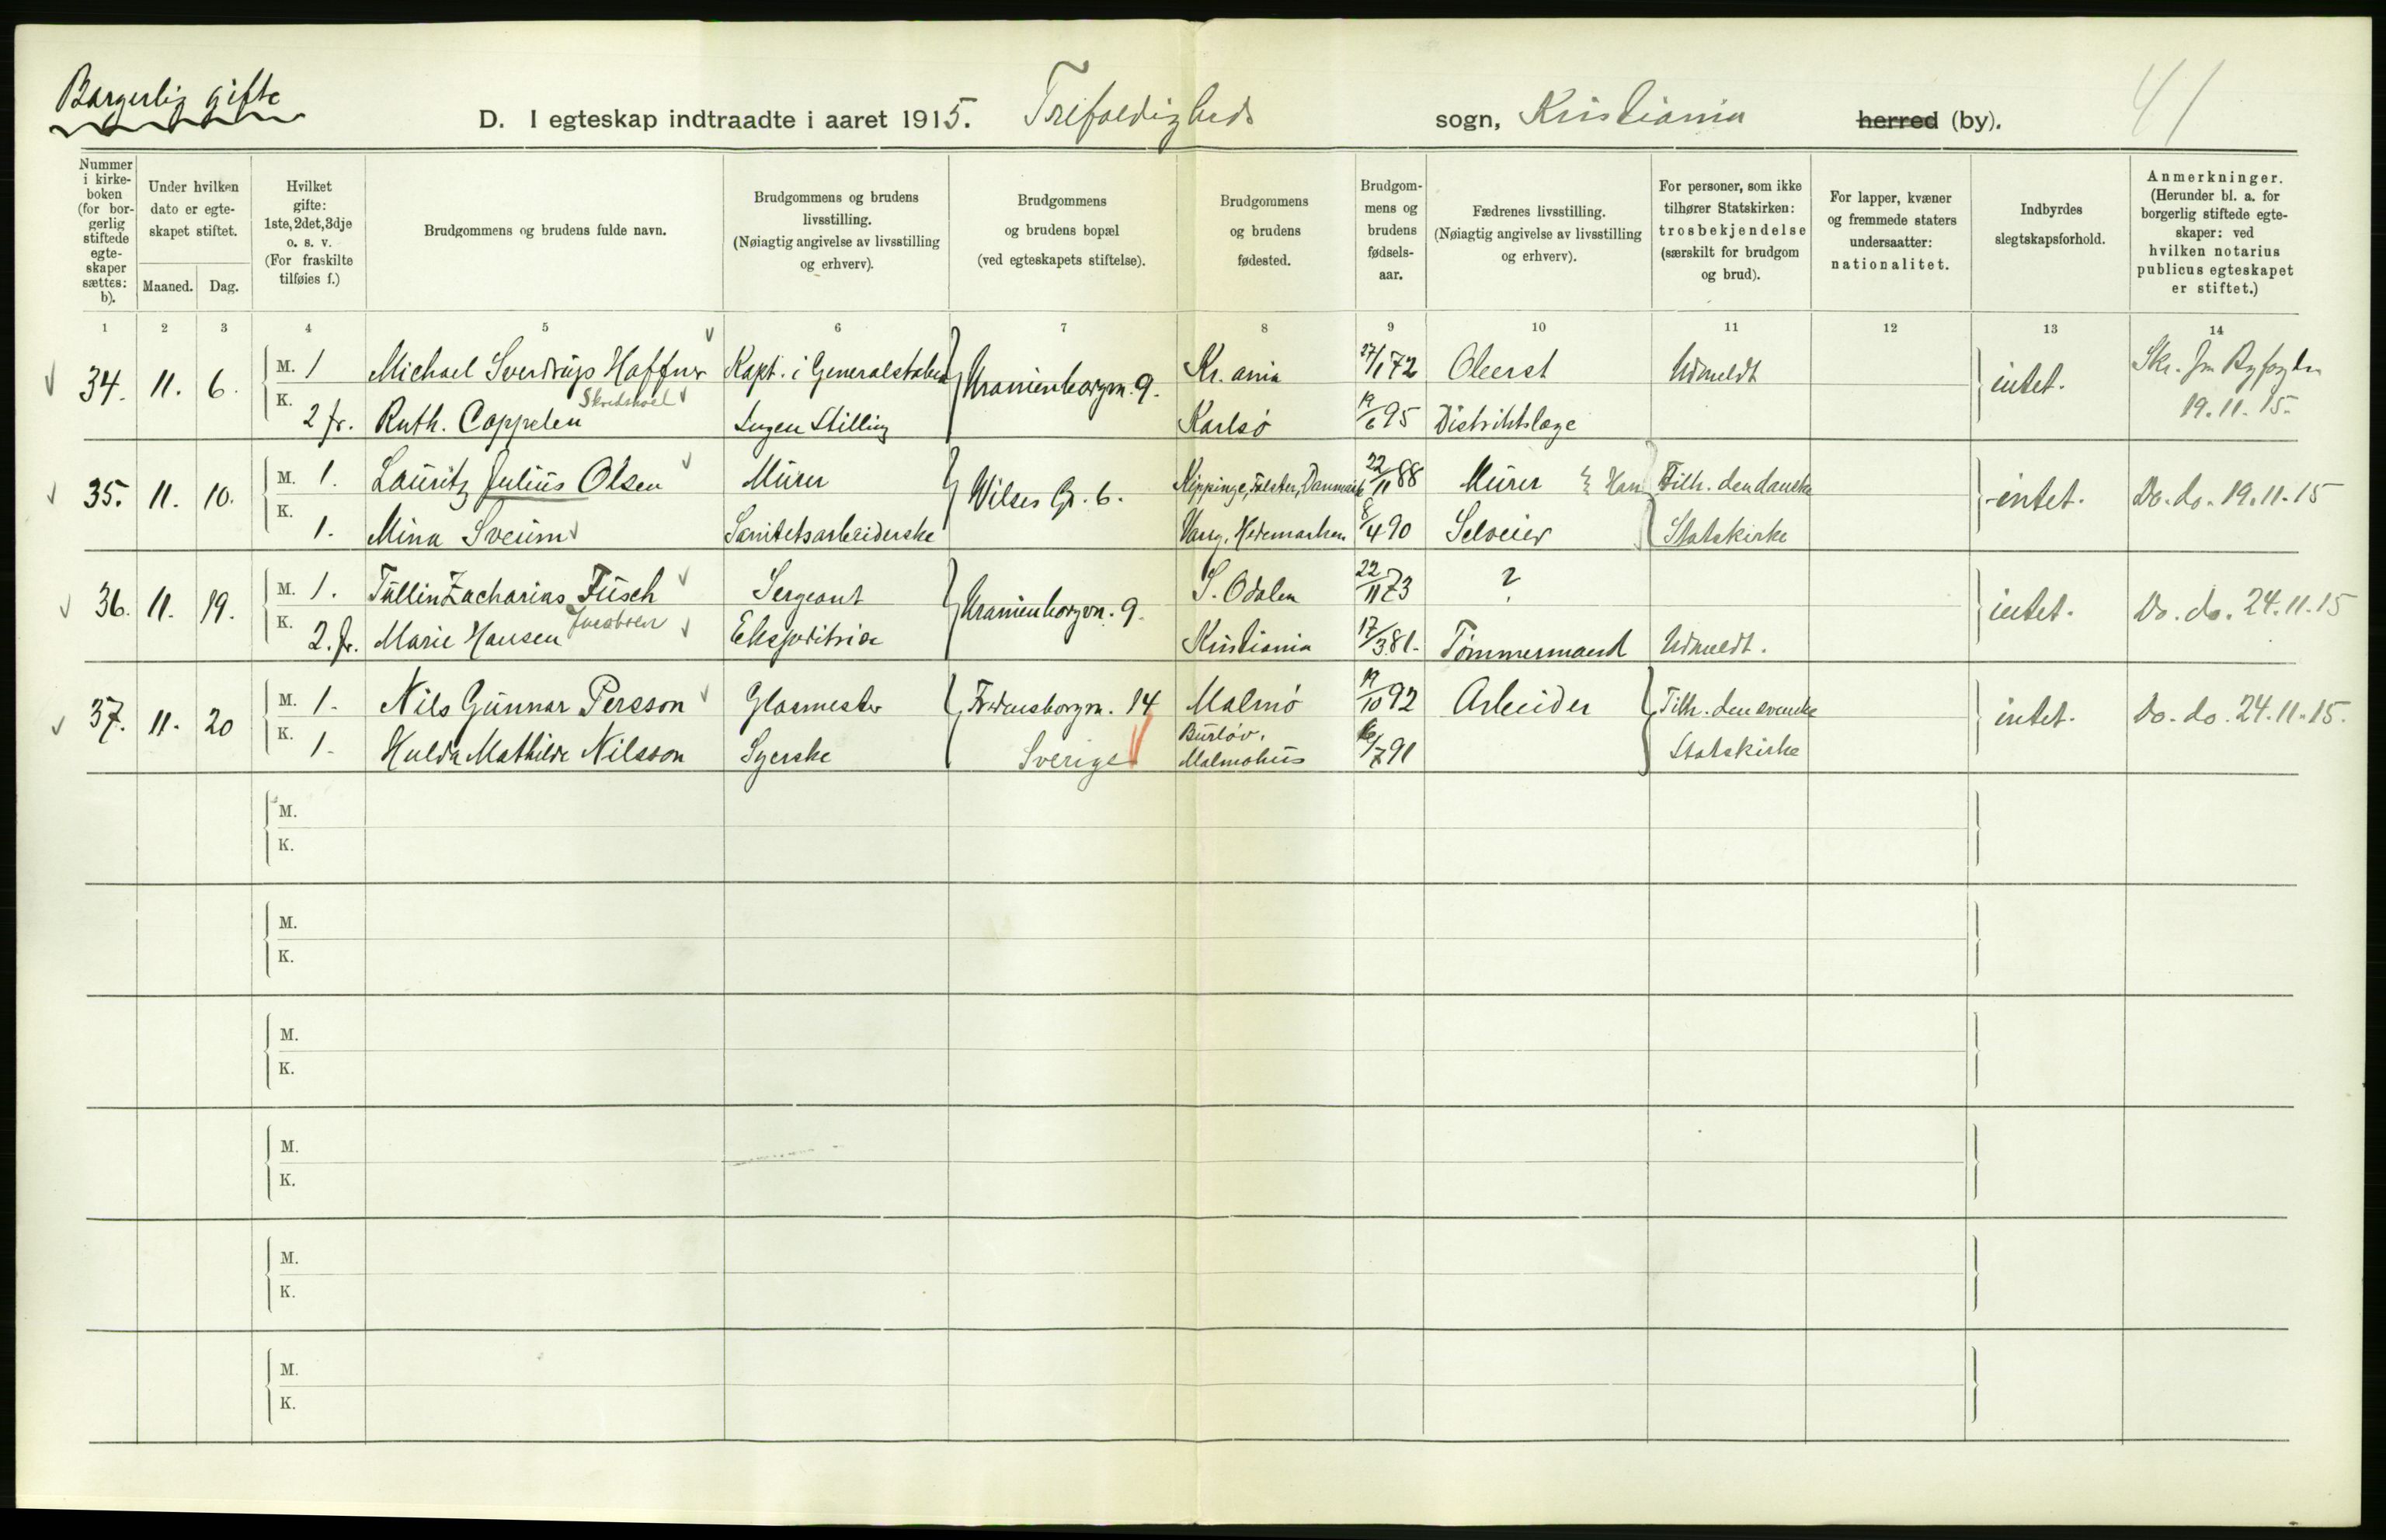 Borgerlig gifte
D. I egteskap indtraadte i aaret 1915. Trefoldigheds sogn, Kristiania herred (by). 41
Nummer i kirkeboken (for borgerlig stiftede egteskaper sættes: b).
Under hvilken dato er egteskapet stiftet.
Maaned. Dag.
Hvilket gifte: 1ste, 2det, 3dje o. s. v. (For fraskilte tilføies f.)
Brudgommens og brudens fulde navn.
Brudgommens og brudens livsstilling. (Nøiagtig angivelse av livsstilling og erhverv).
Brudgommens og brudens bopæl (ved egteskapets stiftelse).
Brudgommens og brudens fødested.
Brudgommens og brudens fødselsaar.
Fædrenes livsstilling. (Nøiagtig angivelse av livsstilling og erhverv).
For personer, som ikke tilhører Statskirken: trosbekjendelse (særskilt for brudgom og brud).
For lapper, kvæner og fremmede staters undersaatter: nationalitet.
Indbyrdes slegtskapsforhold.
Anmerkninger. (Herunder bl. a. for borgerlig stiftede egteskaper: ved hvilken notarius publicus egteskapet er stiftet.)
1 2 3 4 5 6 7 8 9 10 11 12 13 14
34. 11. 6. M. 1 Michael Sverdrup Haffner Kapt. i Generalstaben Uranienborgvn. 9. Kr.ania 27/1 72 Oberst Udmeldt intet. Skr. 19.11.15.
K. 2 fr. Ruth. Cappelen Ingen Stilling Karlsö 19/6 95 Distriktslæge
35. 11. 10. M. 1. Lauritz Julius Olsen Murer Wilses G. 6. Kippinge, Falster, Danmark 22/11 88 Murer Han Tilh. den danske intet. Do. do. 19.11.15
K. 1. Mina Sveum Sanitetsarbeiderske Vang, Hedemarken 8/4 90 Selveier Statskirke
36. 11. 19. M. 1. Tullin Zacharias Fusch Sergeant Uranienborgvn. 9. S. Odalen 22/11 73 ? intet. Do. do. 24.11.15
K. 2. fr. Marie Hansen Jacobsen Ekspeditrice Kristiania 17/3 81. Tömmermand Udmeldt.
37. 11. 20 M. 1. Nils Gunnar Persson Glasmester Fredensborgvn. 14 Malmö 19/10 92 Arbeider Tilh. den svenske intet. Do. do. 24.11.15.
K. 1. Hulda Mathilde Nilsson Syerske Sverige Burlöv. Malmöhus 7 91 Statskirke
M.
K.
M.
K.
M.
K.
M.
K.
M.
K.
M.
K.